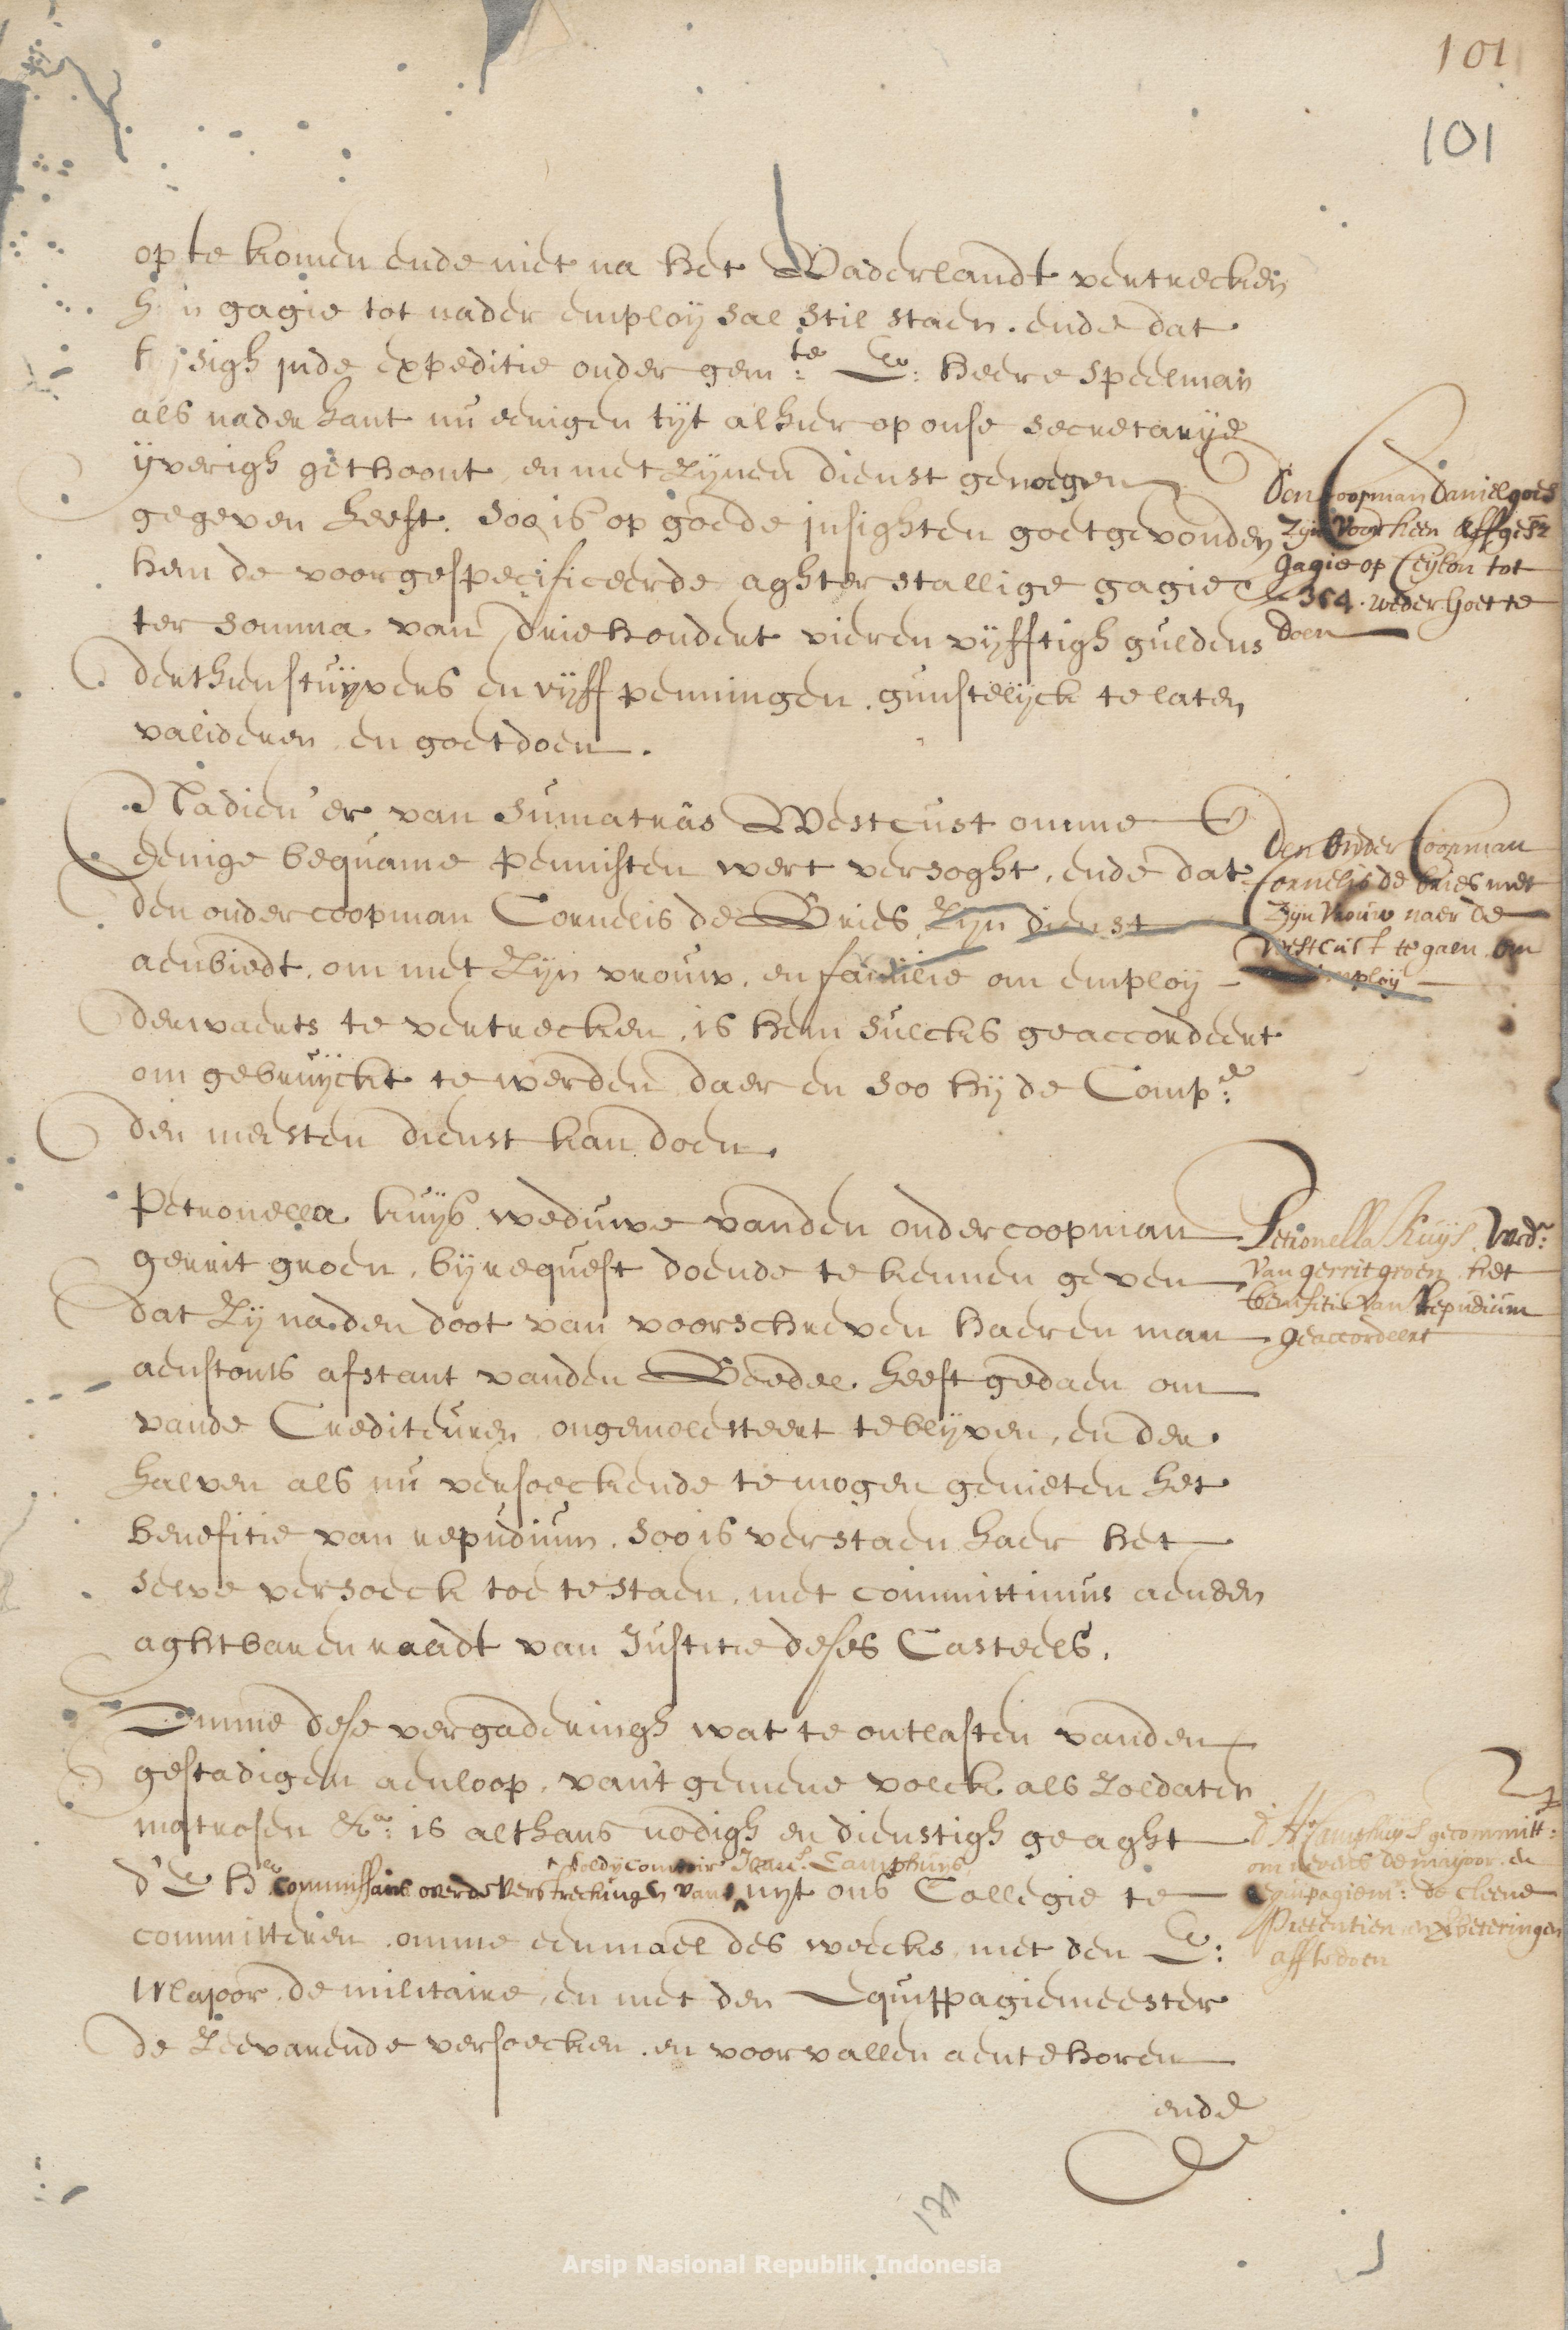 101
101
op te komen ende niet na het Vaderlandt vertrecken
gagie tot nader employ sal stil staen. ende dat
sigh inde expeditie onder gem:te E: heere Speelman
als nader hant nu eenigen tijt alhier op onse secretarije
ijverigh gethoont, en met zijnen dienst genoegen
gegeven heeft. Soo is op goede insighten goetgevonden
hem de voorgespecificeerde aghterstallige gagie
ter somma van driehondert vierenvijfftigh guldens
derthien stuijvers en vijff penningen. gunstelijck te laten
valideren en goetdoen.
Den Coopman Daniel goes
Zijn voor heen affges:
gagie op Ceylon tot
354. weder goet te
doen
Nadien 'er van Sumatras Westcust omme
eenige bequame pennisten wert versoght, ende dat
den ondercoopman Cornelis de Vries, zijn dienst
aenbiedt, om met zijn vrouw, en familie om employ
derwaerts te vertrecken, is hem sulcks geaccordeert
om gebruijckt te werden, daer en soo hij de Comp:e
den meesten dienst kan doen.
Den Onder Coopman
Cornelis de Vries met
Zijn Vrouw naer de
Westcust te gaen om
employ
Petronella Kuijs weduwe vanden ondercoopman
gerrit groen, bij request doende te kennen geven
dat zij na den doot van voorschreven haeren man
aenstonts afstant vanden Boedel heeft gedaen om
vande Crediteuren ongemolesteert te blijven, en der
halven als nu versoeckende te mogen genieten het
benefitie van repudium. Soo is verstaen haer het
selve versoeck toe te staen, met committimus aenden
aghtbaren raadt van Justitie deses Casteels.
Petronella Kuijs, Wed:e
van gerrit groen het
benefitie van Repudium
geaccordeert
Omme dese vergaderingh wat te ontlasten vanden
gestadigen aenloop, van't gemene volck als soldaten
matrosen &a: is althans nodigh en dienstigh geaght
soldy comptoir Joan:s Camphuys
d'E Hr commissaris over de verstreckingen van uijt ons Collegie te
committeren omme eenmael des weecks met den E:
Majoor de militaire, en met den Equippagiemeester
de zeevarende versoecken en voorvallen aen te horen
d'Hr Camphuys gecommitt:
om nevens de majoor en
equipagiem:r de cleene
Pretentien en verbeteringen
aff te doen
ende
171
Arsip Nasional Republik Indonesia